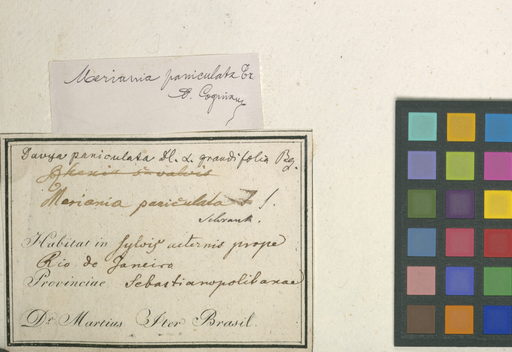 Meriania paniculata Tr
A. Cogniaux
Davya paniculata Dl. α. grandifolia Bg.
Meriania paniculata
Schrank.
Habitat in sylvis aeternis prope
Rio de Janeiro
Provinciae Sebastianopolitanae
Dr Martius Iter Brasil.